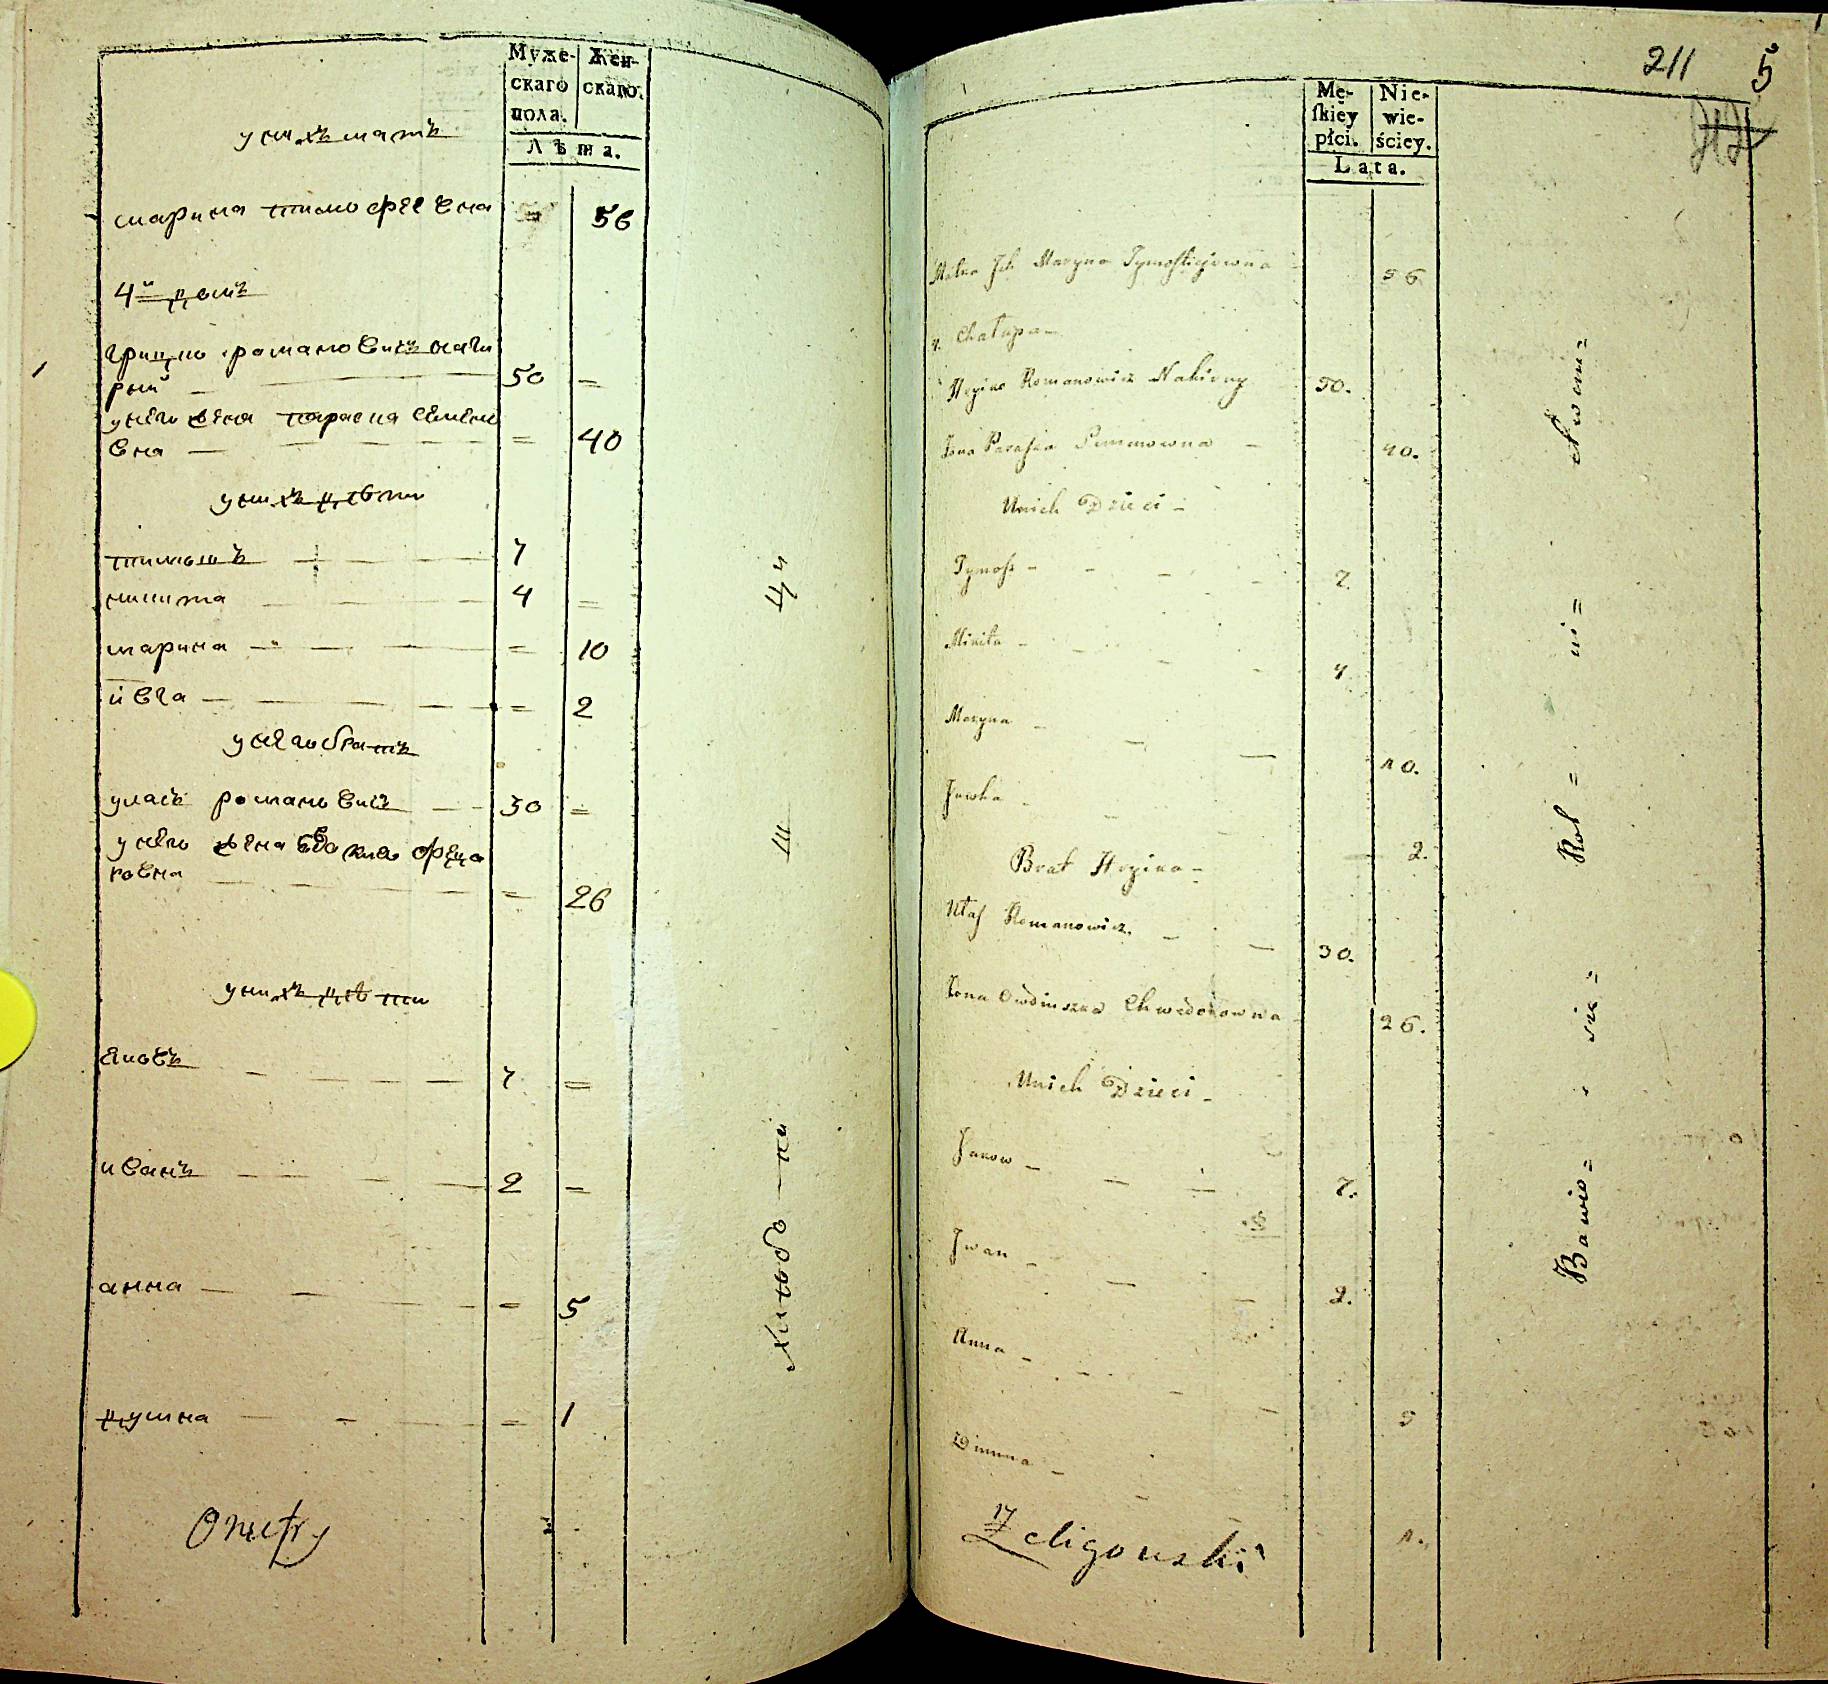 Муже-
скаго
пола.
Жен-
скаго.
Лѣта.
унихъ мать
марина тимофеевна 56
4й домъ
грицко романовичъ наги
рный 50 =
унего жена параска семено
вна = 40
унихъ дѣти
тимошъ 7
микита 4 =
марина = 10
ивга = 2
унего братъ
уласъ романовичъ 30 =
унего жена федо
ровна = 26
унихъ дѣти
яковъ 7 =
иванъ 2 =
анна = 5
думна = 1
хлѣбо – па
ш
ци
211 5
Mę-
skiey
płci.
Nie-
wie-
ściey.
Lata.
Matka Ich Maryna Tymofiejowna 56
4. Chałupa
Hryćko Romanowicz Nahirny 50.
Żona Paraska Semenowna 40.
Unich Dzieci
Tymosz 7
Mikita 4
Maryna 10.
Jewha 2.
Brat Hryćka
Ułas Romanowicz 30.
Żona Chwedorowna 26.
Unich Dzieci
Jakow 7.
Iwan 2.
Anna 5
Dumna 1.
Bawio = się = Rol = ni = ctwem =
17
Zeligowski